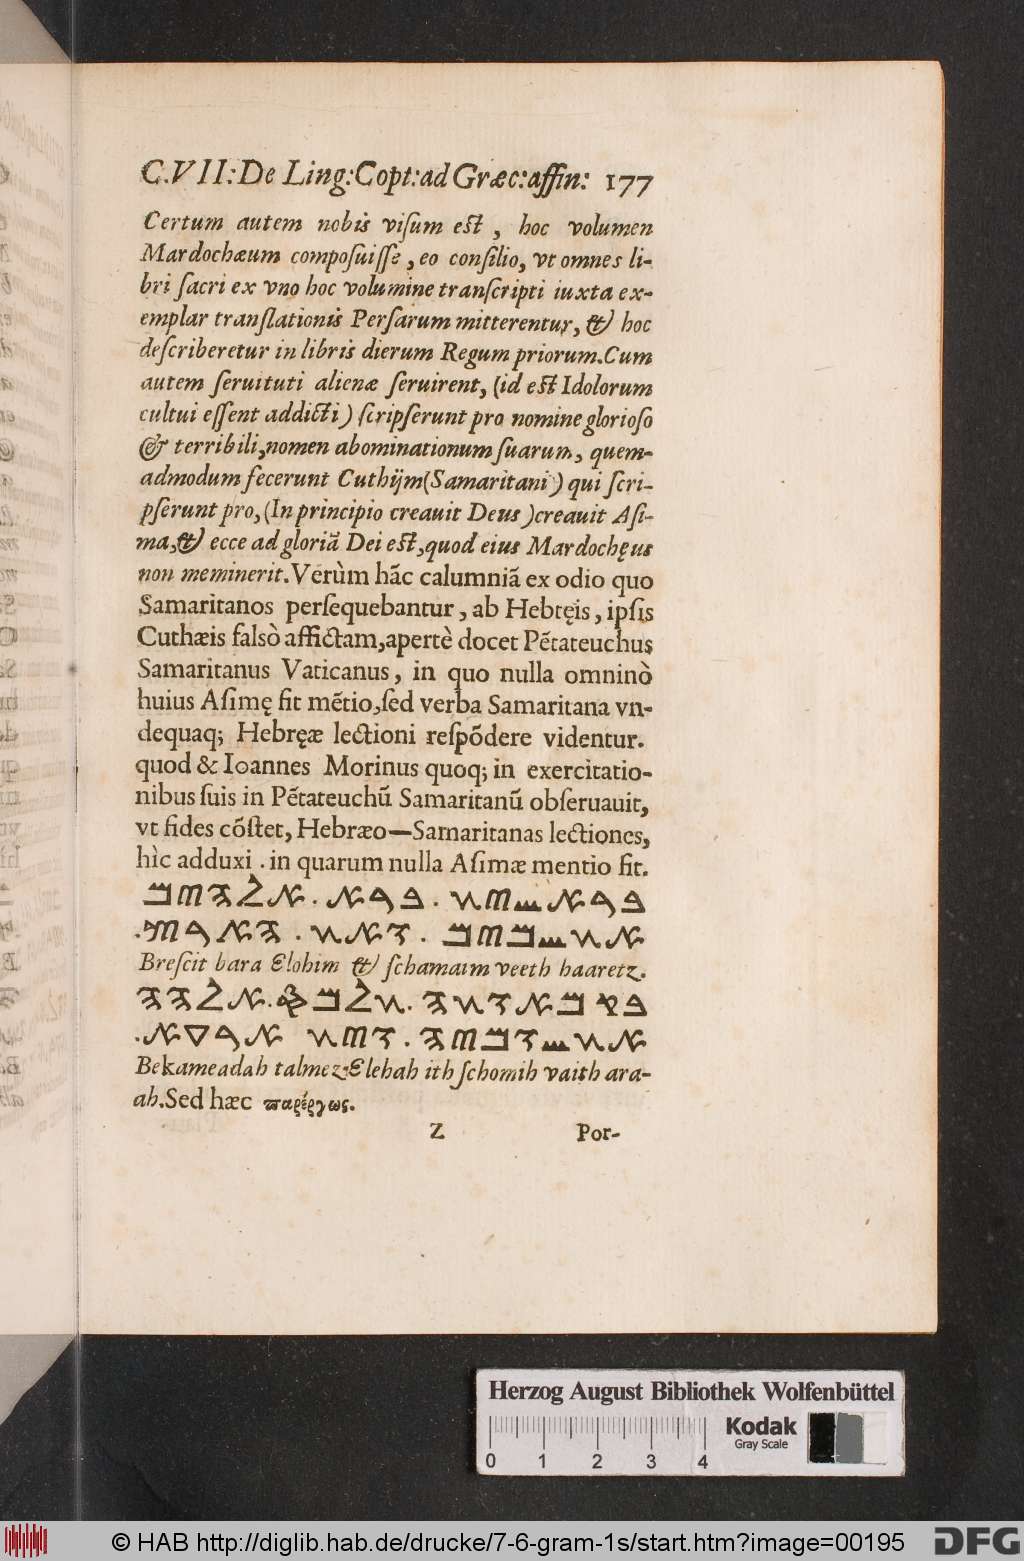 C.VII: De Ling: Copt: ad Græc: affin: 177
Certum autem nobis viſum eſt, hoc volumen
Mardochæum compoſuiſſe, eo conſilio, vt omnes li-
bri ſacri ex vno hoc volumine tranſcripti iuxta ex-
emplar tranſlationis Perſarum mitterentur, & hoc
deſcriberetur in libris dierum Regum priorum. Cum
autem ſeruituti alienæ ſeruirent, (id eſt Idolorum
cultui eſſent addicti) ſcripſerunt pro nomine glorioſo
& terribili, nomen abominationum ſuarum, quem-
admodum fecerunt Cuthijm (Samaritani) qui ſcri-
pſerunt pro, (In principio creauit Deus) creauit Aſi-
ma, & ecce ad gloriā Dei eſt, quod eius Mardochęus
non meminerit. Verùm hāc calumniā ex odio quo
Samaritanos perſequebantur, ab Hebręis, ipſis
Cuthæis falsò affictam, apertè docet Pētateuchus
Samaritanus Vaticanus, in quo nulla omninò
huius Aſimę fit mētio, ſed verba Samaritana vn-
dequaq; Hebręæ lectioni reſpōdere videntur.
quod & Ioannes Morinus quoq; in exercitatio-
nibus ſuis in Pētateuchū Samaritanū obſeruauit,
vt fides cōſtet, Hebræo—Samaritanas lectiones,
hìc adduxi. in quarum nulla Aſimæ mentio fit.
ࠁࠓࠀࠔࠉࠕ . ࠁࠓࠀ . ࠀࠋࠄࠉࠌ
ࠀࠕࠔࠌࠉࠌ . ࠅࠀࠕ . ࠄࠀࠓࠑ .
Breſcit bara Elohim & ſchamaim veeth haaretz.
ࠁࠒࠌࠀࠅࠕࠄ . ࠕࠋࠌࠎ . ࠀࠋࠄࠄ
ࠀࠕࠔࠅࠌࠉࠄ . ࠅࠉࠕ ࠀࠓࠏࠀ .
Bekameadah talmez: Elehah ith ſchomih vaith ara-
ah. Sed hæc παρέργως.
Z Por-
Herzog August Bibliothek Wolfenbüttel
Kodak
Gray Scale
0 1 2 3 4
© HAB http://diglib.hab.de/drucke/7-6-gram-1s/start.htm?image=00195
DFG